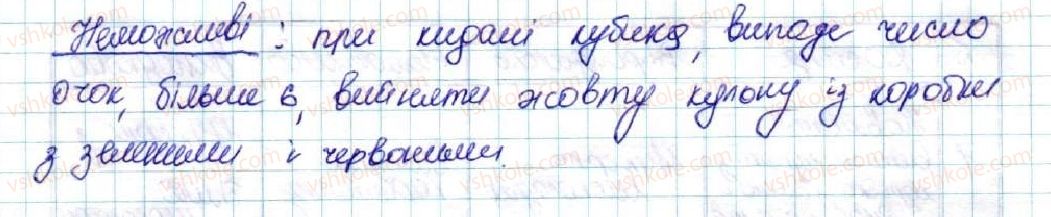 Неможливі : при киданні кубика, випаде число
очок, більше 6, вийняти жовту кульку із коробки
з зеленими і червоними.